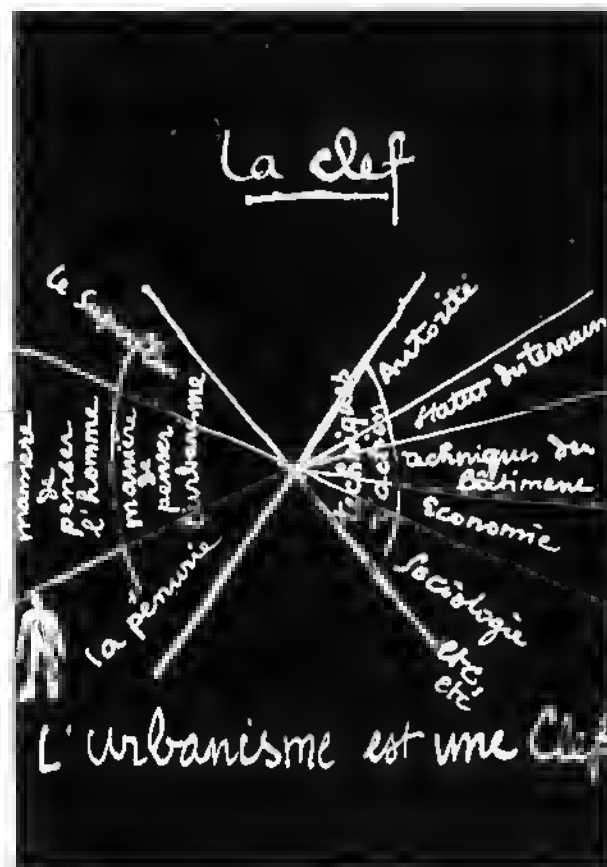 La clef
Le
manière
de
penser
l'homme
manière
de
penser
l'urbanisme
la pénurie
techniques
d'action
Autorité
Statut du terrain
techniques du
bâtiment
Economie
Sociologie
etc,
etc
L'urbanisme est une Clef